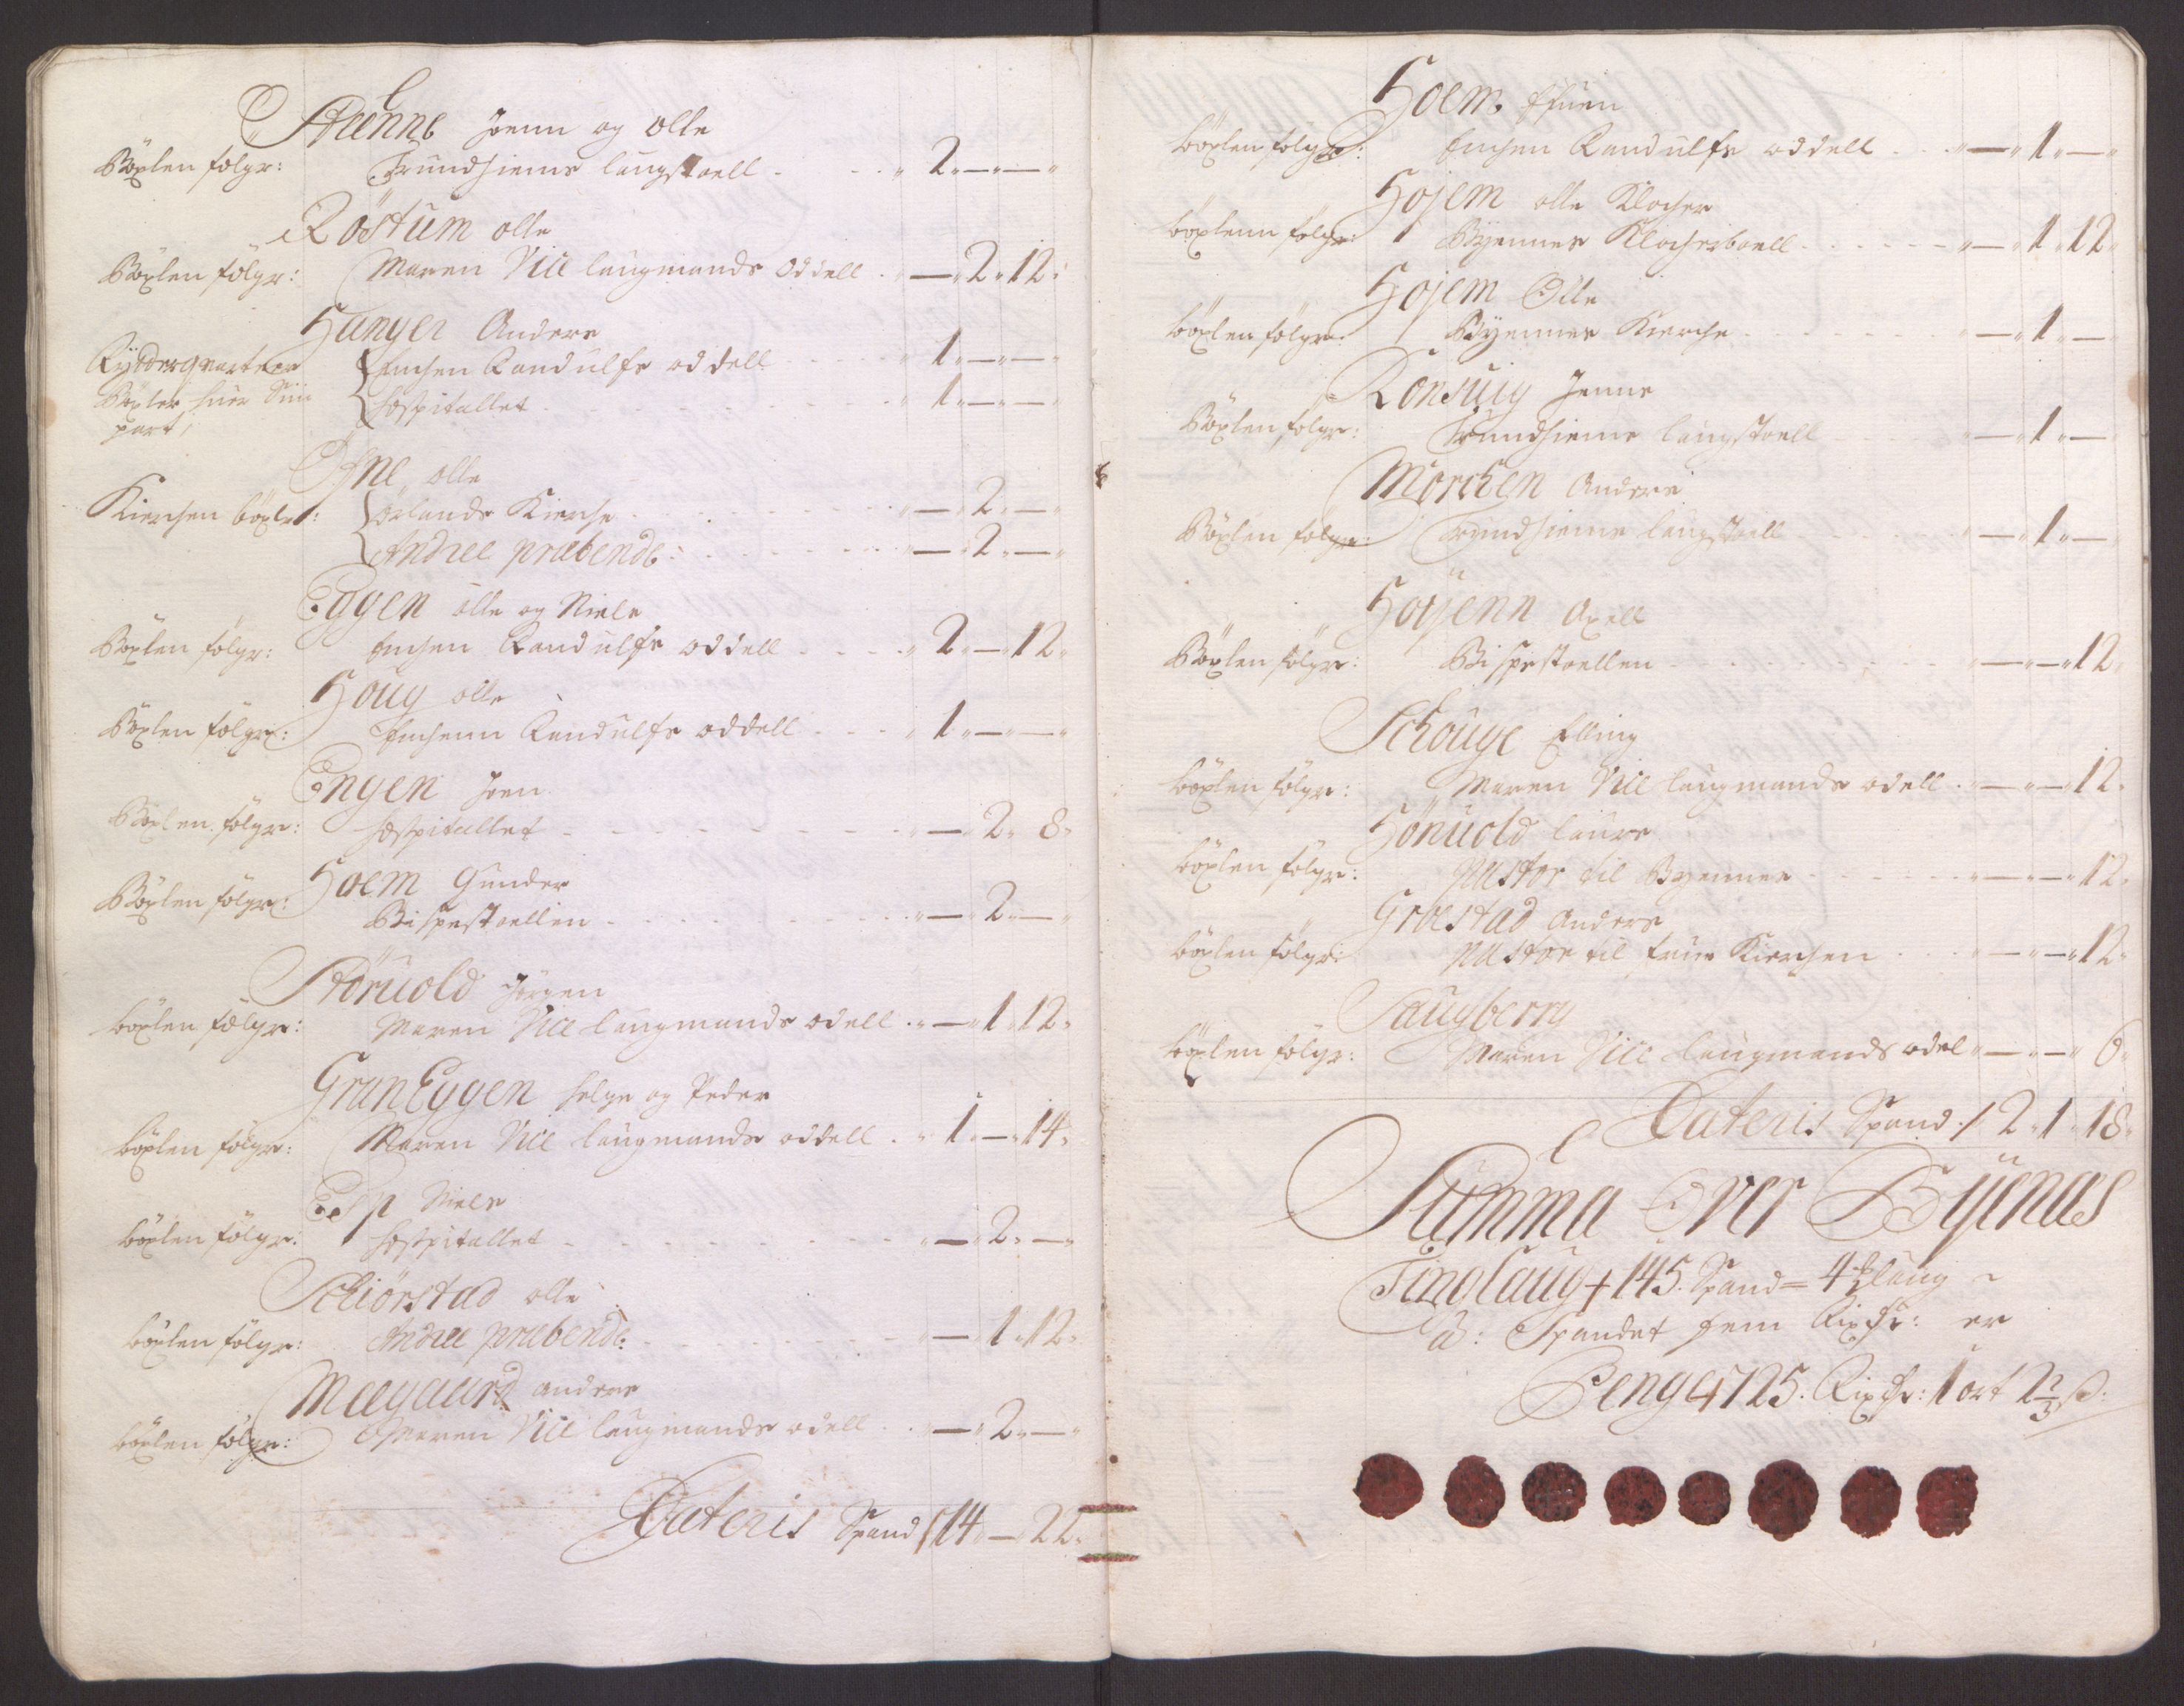 Stenne Joenn og olle
Böxlen følgr: Trundhiems laugstoell . . „ 2 „ — „ — „
Röstum olle
Böxlen følgr: Maren Vice laugmands oddell . „ — „ 2 „ 12 „
Hanger Anders
Rÿtterqvarteer Enchen Randulfs oddell . . „ 1 „ — „ — „
Böxler huer Sin Hospitallet . . „ 1 „ — „ —
part,
Øfne olle
Kierchen böxlr: Ørlands Kierche . . „ — „ 2 „ — „
Andree præbende . . „ — „ 2 „ — „
Eggen olle og Niels
Böxlen følgr: Enchen Randulfs oddell . . „ 2 „ — „ 12 „
Houg olle
Böxlen følgr: Enchenn Randulfs oddell . . „ 1 „ — „ — „
Engen Joen
Böxlen følgr: Hospitallet . . „ — „ 2 „ 8 „
Hoem Gunder
Böxlen følgr: Bispestoellen . . „ — „ 2 „ — „
Störuold Jörgen
böxlen følgr: Maren Vice laugmands odell . „ — „ 1 „ 12 „
GranEggen helge og Peder
böxlen følgr: Maren Vice laugmands oddell . „ 1 „ — „ 14 „
Esp Niels
böxlen følgr: Hospitallet . . „ — „ 2 „ — „
Schiørstad olle
böxlen følgr: Andree præbende . . „ — „ 1 „ 12 „
Meegaard anders
böxlen følgr: Maren Vice laugmands odell . . „ — „ 2 „ — „
Lateris Spand / 14 „ — 22 „
Hoem
böxlen følgr: Enchen Randulfs oddell . . „ — „ 1 „ — „
Hojem olle Klocher
böxlenn følgr: Byennes Klocherboell . . „ — „ 1 „ 12 „
Hojem Olle
böxlen følgr: Byennes Kierche . . „ — „ 1 „ — „
Ronsuig Jenns
Böxlen følgr: Trundhiems laugstoell . . „ — „ 1 „ —
Morchen Anders
Böxlen følgr: Trundhiems laugstoell . . „ — „ 1 „ —
Høyenn Axell
Böxlen følgr: Bispestoellen . . „ — „ — „ 12 „
Schouge Elling
böxlen følgr: Maren Vice laugmands odell . „ — „ — „ 12 „
Hönuold laurs
böxlen følgr: Pastor til Byennes . . „ — „ — „ 12 „
Groestad Anders
böxlen følgr: Pastor til frue Kierchen . . „ — „ — „ 12 „
Saugberrg
böxlen følgr: Maren Vice laugmands odel „ — „ — „ 6 „
Lateris Spand / 2 „ 1 „ 18 „
Summa Over Byenes
Tinglaug 145 Spand = 4 laug
á: Spandet fem Rixdr: er
Penge 725. Rixdr: 1 ort 2 2/3 ß: